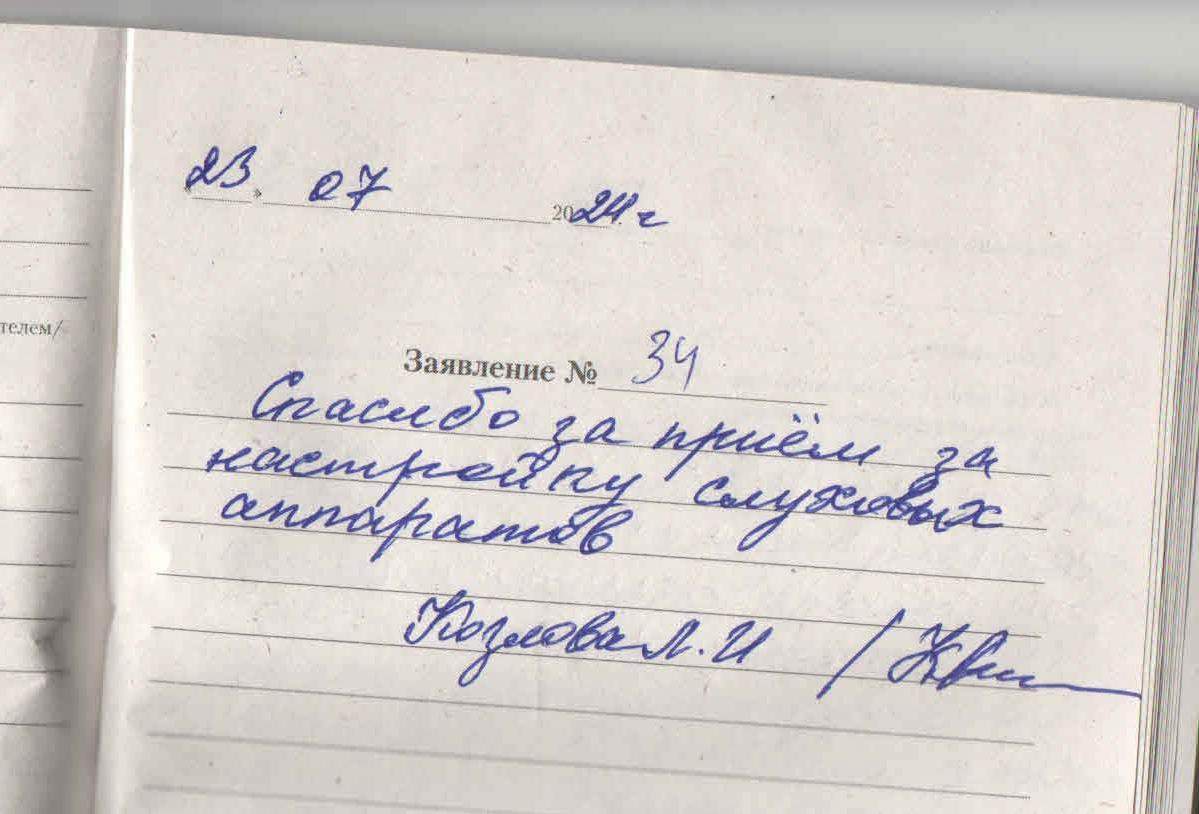 «23» 07 2024 г
телем/
Заявление № 34
Спасибо за приём за
настройку слуховых
аппаратов
Козлова Л. И /